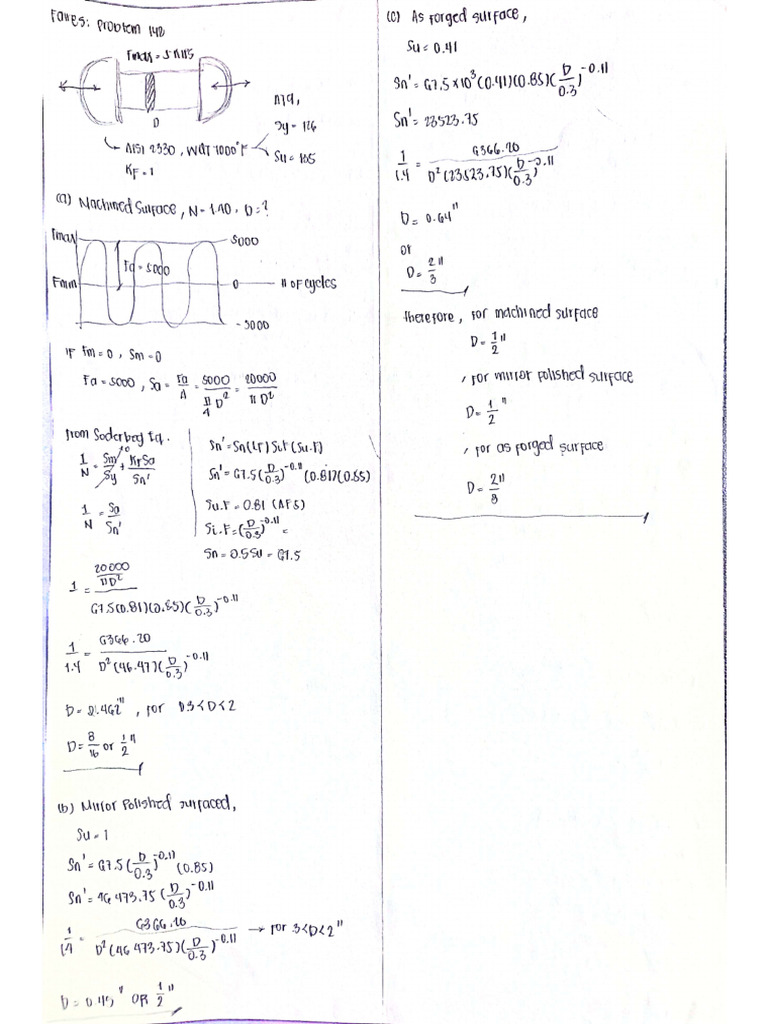 Faires: Problem 142
Fmax = 5 KIPS
D
AT9,
Sy = 126
AISI 2330, WQT 1000°F
Su = 105
KF = 1
(a) Machined Surface, N = 1.40, D = ?
Fmax
5000
Fa = 5000
Fmm
0
# OF cycles
-5000
IF Fm = 0, Sm = 0
Fa = 5000, Sa = Fa/A = 5000/(π/4 D²) = 20000/(π D²)
From Soderberg Eq.
1/N = Sm/Sy + KfSa/Sn'
0
1/N = Sa/Sn'
Sn' = Sn(LF) SiF (Su.F)
Sn' = 67.5 (D/0.3)^-0.11 (0.817)(0.85)
Su.F = 0.81 (AF5)
Si.F = (D/0.3)^-0.11 =
Sn = 0.5Su = 67.5
1 = (20000/πD²)/(67.5(0.81)(0.85)(D/0.3)^-0.11)
1/1.4 = 6366.20/(D²(46.47)(D/0.3)^-0.11)
D = 0.462", for 0.3<D<2
D = 8/16 or 1/2"
(b) Mirror Polished surfaced,
Su = 1
Sn' = 67.5 (D/0.3)^-0.11 (0.85)
Sn' = 46 473.75 (D/0.3)^-0.11
1/1.4 = 6366.20/(D²(46 473.75)(D/0.3)^-0.11) → for 3<D<2"
D = 0.45" OR 1/2"
(c) As forged surface,
Su = 0.41
Sn' = 67.5 x 10³ (0.41)(0.85)(D/0.3)^-0.11
Sn' = 23523.75
1/1.4 = 6366.20/(D²(23523.75)(D/0.3)^-0.11)
D = 0.64"
or
D = 2"/3
therefore, for machined surface
D = 1/2"
, for mirror polished surface
D = 1/2"
, for as forged surface
D = 2"/3